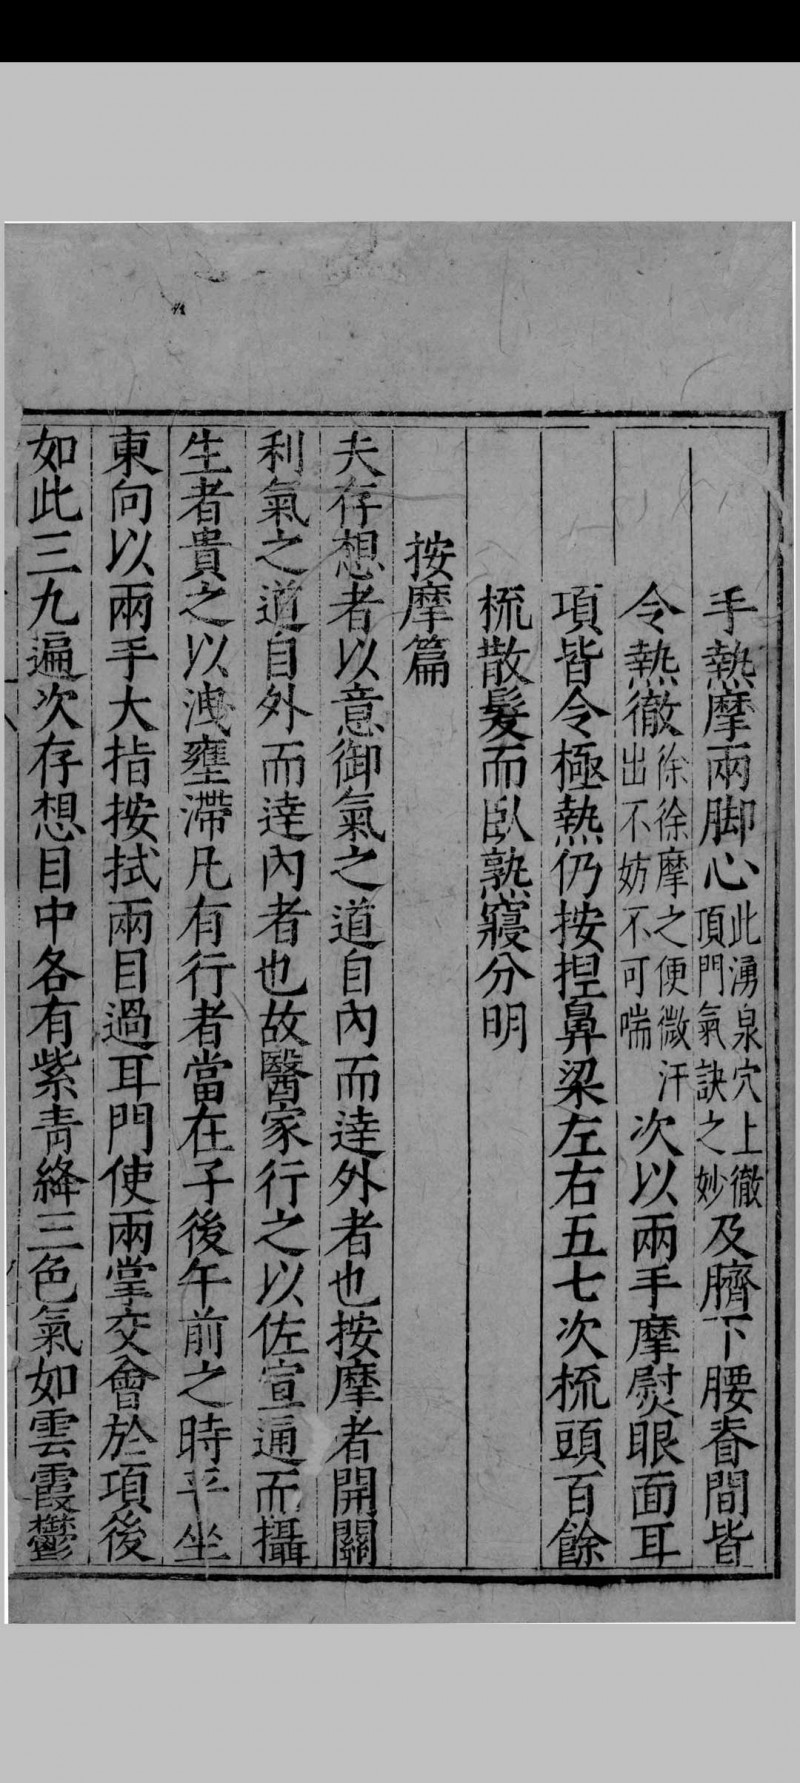 手熱摩兩脚心此湧泉穴上徹頂門氣訣之妙及臍下腰脊間皆
令熱徹徐徐摩之便微汗出不妨不可喘次以兩手摩熨眼面耳
項皆令極熱仍按捏鼻梁左右五七次梳頭百餘
梳散髮而臥熟寢分明
按摩篇
夫存想者以意御氣之道自內而達外者也按摩者開關
利氣之道自外而達內者也故醫家行之以佐宣通而攝
生者貴之以洩壅滯凡有行者當在子後午前之時平坐
東向以兩手大指按拭兩目過耳門使兩掌交會於項後
如此三九遍次存想目中各有紫青絳三色氣如雲霞鬱